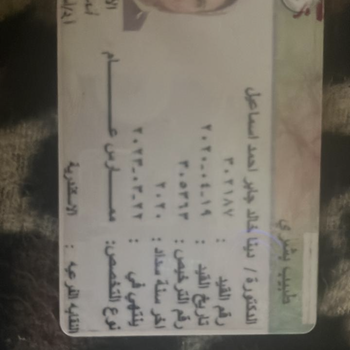 طبيب بشري
الدكتورة / دينا خالد جابر احمد اسماعيل
رقم القيد : ٣٠٢١٨٧
تاريخ القيد : ١٩-٠٤-٢٠٢٠
رقم الترخيص : ٣٠٥٣٦٣
اخر سنة سداد : ٢٠٢٠
ينتهي في : ٢٢-٠٣-٢٠٢٣
نوع التخصص: ممارس عام
النقابه الفرعيه : الاسكندرية